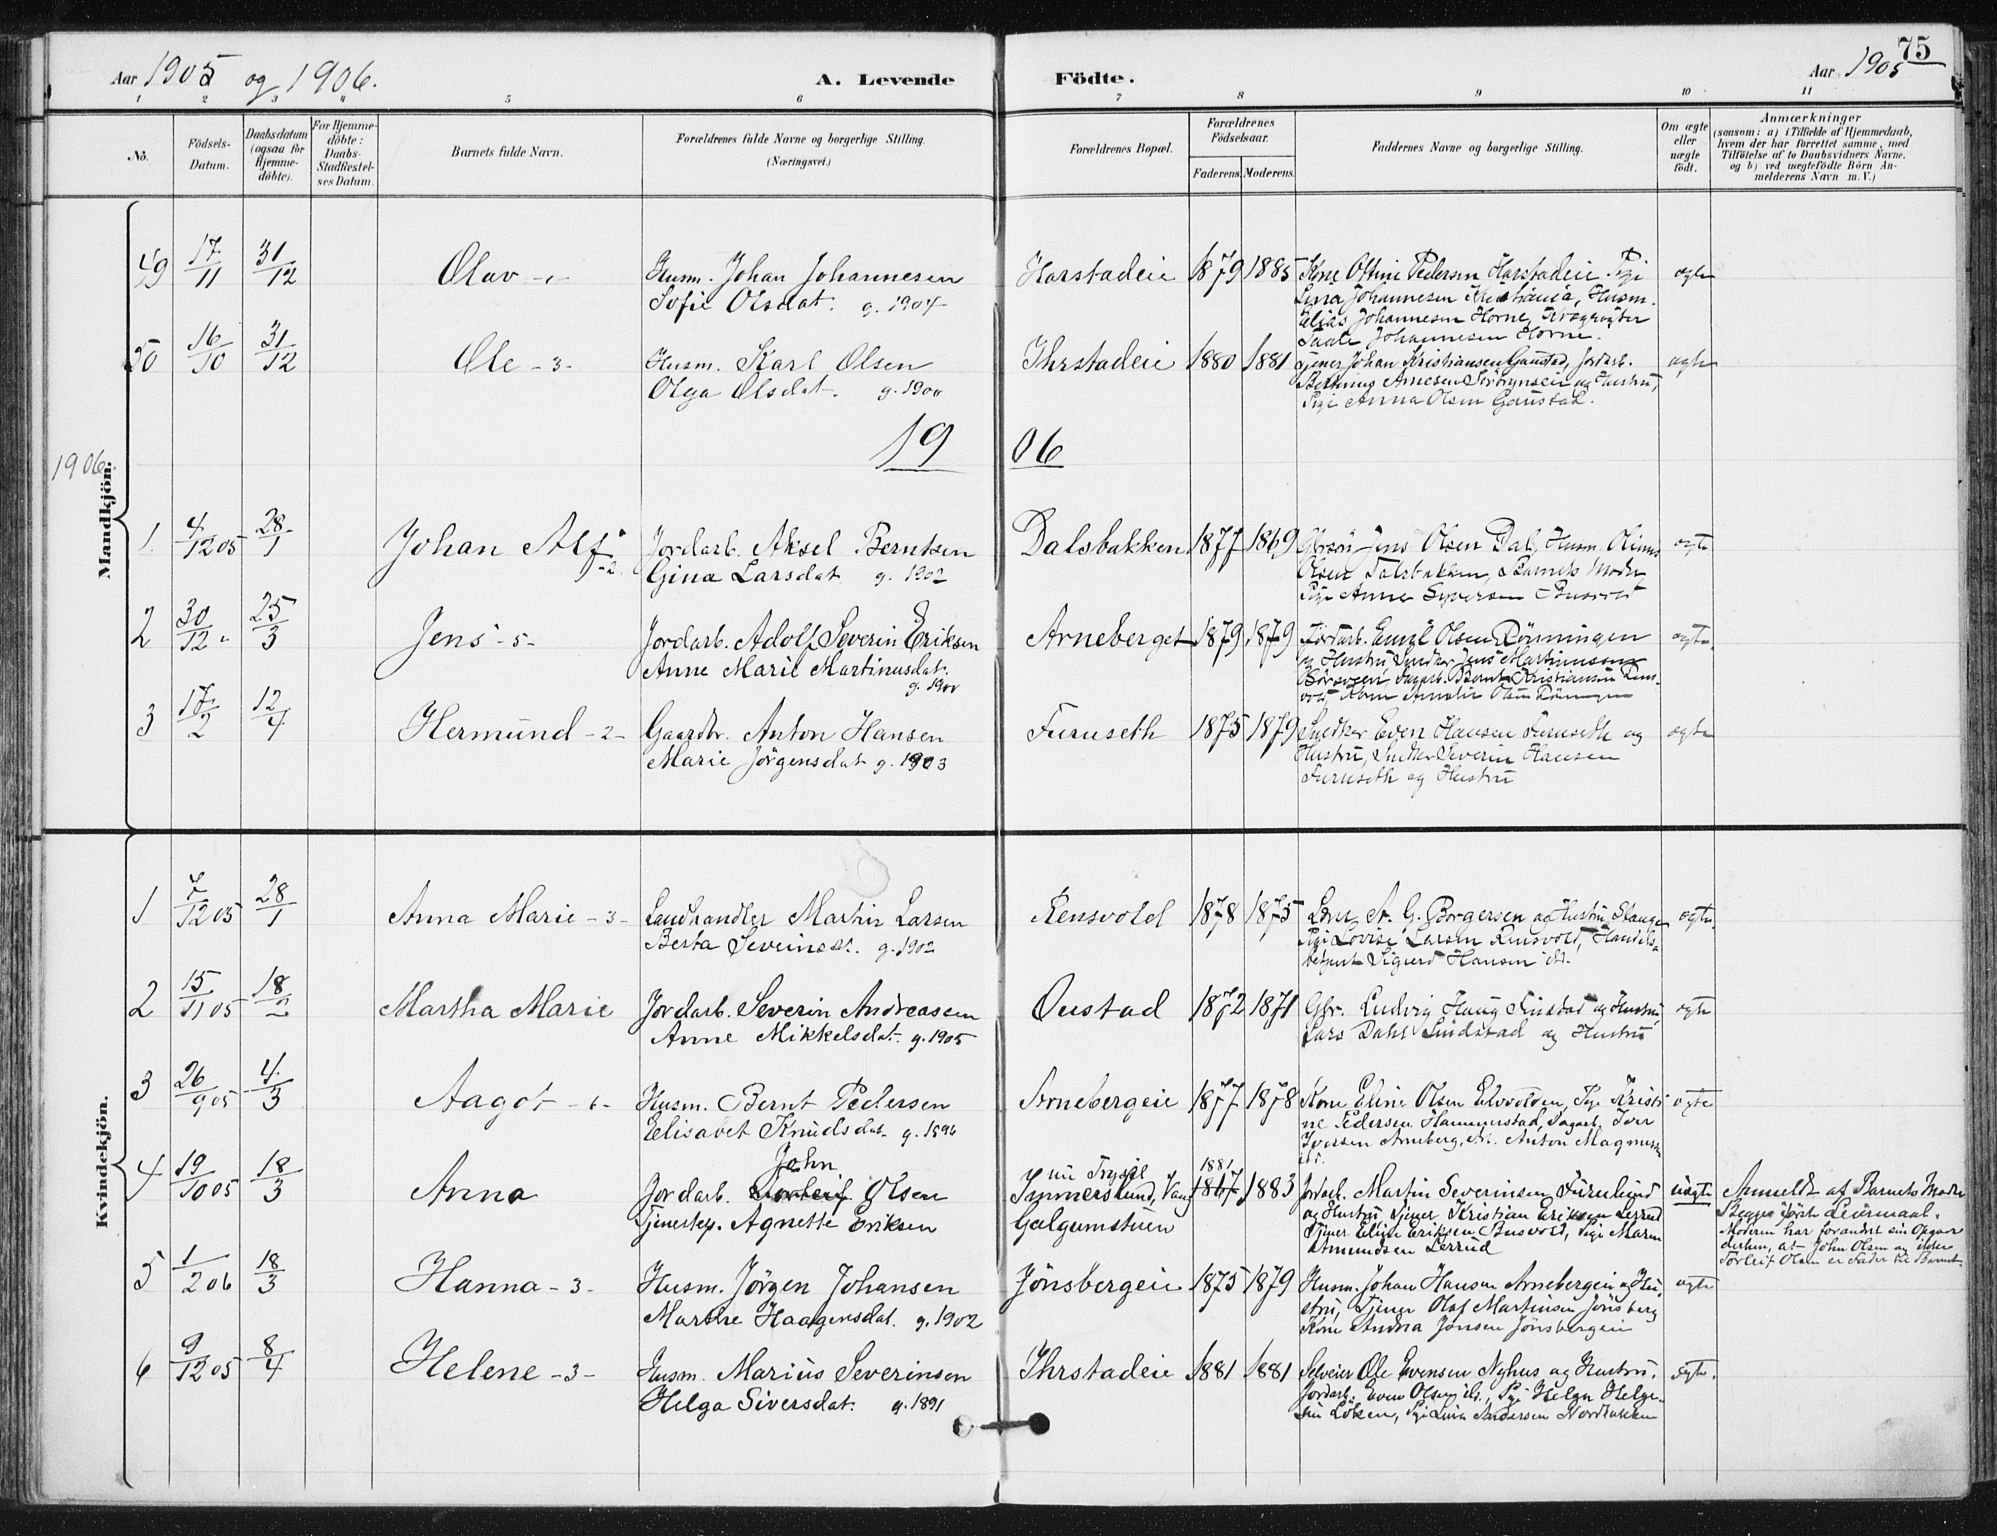 75
Aar 1905 og 1906.
A. Levende Födte.
Aar 1905
1 2 3 4 5 6 7 8 9 10 11
No.
Födsels-Datum.
Daabsdatum (ogsaa for Hjemme-döbte).
For Hjemme-döbte: Daabs-Stadfæstel-ses Datum.
Barnets fulde Navn.
Forældrenes fulde Navne og borgerlige Stilling.
(Næringsvei.)
Forældrenes Bopæl.
Forældrenes Födselsaar.
Faderens. Moderens.
Faddernes Navne og borgerlige Stilling.
Om ægte eller uægte födt.
Anmærkninger
(saasom: a) i Tilfælde af Hjemmedaab,
hvem der har forrettet samme, med
Tilföielse af to Daabsvidners Navne,
og b) ved uægtefödte Börn An-
melderens Navn m. V.)
Mandkjön.
49 17/11 31/12 Olav -1- Husm. Johan Johannesen Harstadeie 1879 1885 Kone Ottine Pedersen Harstadeie Pige ægte
Sofie Olsdat. g. 1904 Lina Johannesen Kristiania, Husm.
Elias Johannesen Horne,
Johannesen Horne.
50 16/10 31/12 Ole -3- Husm. Karl Olsen Ihrstadeie 1880 1881 Tjener Johan Kristiansen Gaustad, Jordarb. ægte
Olga Olsdat. g. 1900 Arnesen og Hustru,
Pige Anna Olsen Gaustad.
1906
1906.
1. 4/12 05 28/1 Johan Alf -2- Jordarb. Aksel Berntsen Dalsbakken 1877 1869 Jens Olsen Dal, Husm. Olinus ægte
Gina Larsdat g. 1902 Olsen Dalsbakken, Barnets Moder,
Pige Anne Syversen Busvold
2 30/12 " 25/3 Jens -5- Jordarb. Adolf Severin Eriksen Arneberget 1879 1879 Jordarb. Emil Olsen Rönningen ægte.
Anne Marie Martinusdat. og Hustru, Snedker Jens Martinussen
g. 1900 Bernt Kristiansen Rens-
vold, Kone Olsen Rönningen
3 17/2 12/4 Hermund -2- Gaardbr. Anton Hansen Furuseth 1875 1879 Snedker Even Hansen Furuseth og ægte
Marie Jörgensdat g. 1903 Hustru, Snedker Severin Hansen
Furuseth og Hustru
Kvindekjön.
1 7/12 05 28/1 Anna Marie -3- Landhandler Martin Larsen Rensvold 1878 1875 A. G. Borgersen og Hustru Stange ægte.
Berta Severinsdt. g. 1902 Pige Lovise Larsen Rensvold, Handels-
betjent Sigurd Hansen
2 15/11 05 18/2 Martha Marie Jordarb. Severin Andreassen Oustad 1872 1871 Gbr. Ludvig Haug Sindstad og Hustru, ægte
Anne Mikkelsdat. g. 1905 Lars Dahl Sindstad og Hustru
3 26/9 05 4/3 Aagot -6- Husm. Bernt Pedersen Arnebergeie 1877 1878 Kone Eline Olsen Elvsolden, Pige Kristi- ægte
Elisabet Knudsdat. g. 1896 ne Pedersen Hammerstad, Dagarb. Iver
Iversen Arneberg, Anton Magnussen
ibd.
4 19/10 05 18/3 Anna Jordarb. John Torleif Olsen nu Trysil 1881 Immerslund, Vang 1867 1883 Jordarb. Martin Severinsen Furulund uægte Anmeldt af Barnets Moder
Tjenestep. Agnette Eriksen Galgumstuen og Hustru Tjener Kristian Eriksen Lerrud Begges förste Leiermaal.
Tjener Eline Eriksen Busvold, Pige Maren Moderen har forandret sin Opgave
Amundsen Lerrud derhen, at John Olsen og ikke
Torleif Olsen er Fader til Barnet
5 1/2 06 18/3 Hanna -3- Husm. Jörgen Johansen Jönsbergeie 1875 1879 Husm. Johan Hansen Arnebergeie og Hu- ægte
Marthe Haagensdat. g. 1902 stru, Tjener Olaf Martinsen Jönsberg
Kone Andrea Jensen Jönsbergeie
6 9/12 05 8/4 Helene -3- Husm. Marius Severinsen Ihrstadeie 1881 1881 Selveier Ole Evensen Nyhus og Hustru. ægte.
Helga Siversdat. g. 1891 Jordarb. Even Olsen ds., Pige Helga Helge-
sen Löken, Pige Lina Andersen Nordbakken